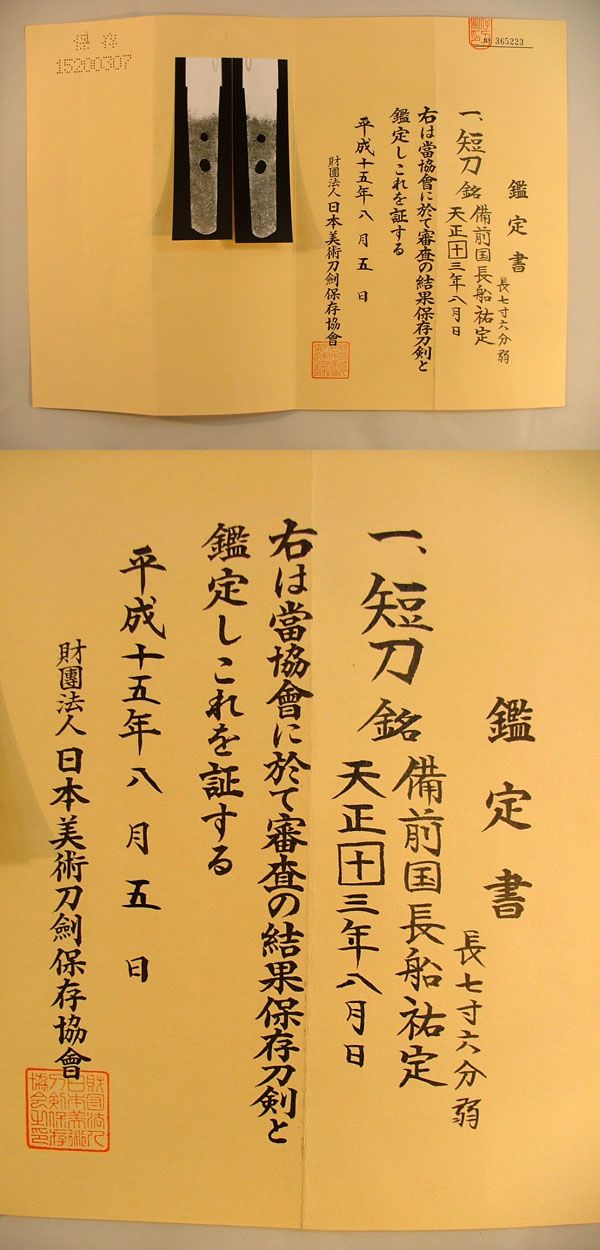 保存
15200307
№ 365223
鑑定書
一、短刀 銘 備前国長船祐定
天正十三年八月日
長七寸六分弱
右は當協會に於て審査の結果保存刀剣と
鑑定しこれを証する
平成十五年八月五日
財團法人 日本美術刀劍保存協會
鑑定書
一、短刀 銘 備前国長船祐定
天正十三年八月日
長七寸六分弱
右は當協會に於て審査の結果保存刀剣と
鑑定しこれを証する
平成十五年八月五日
財團法人 日本美術刀劍保存協會
財団法人
日本美術
刀剣保存
協会之印